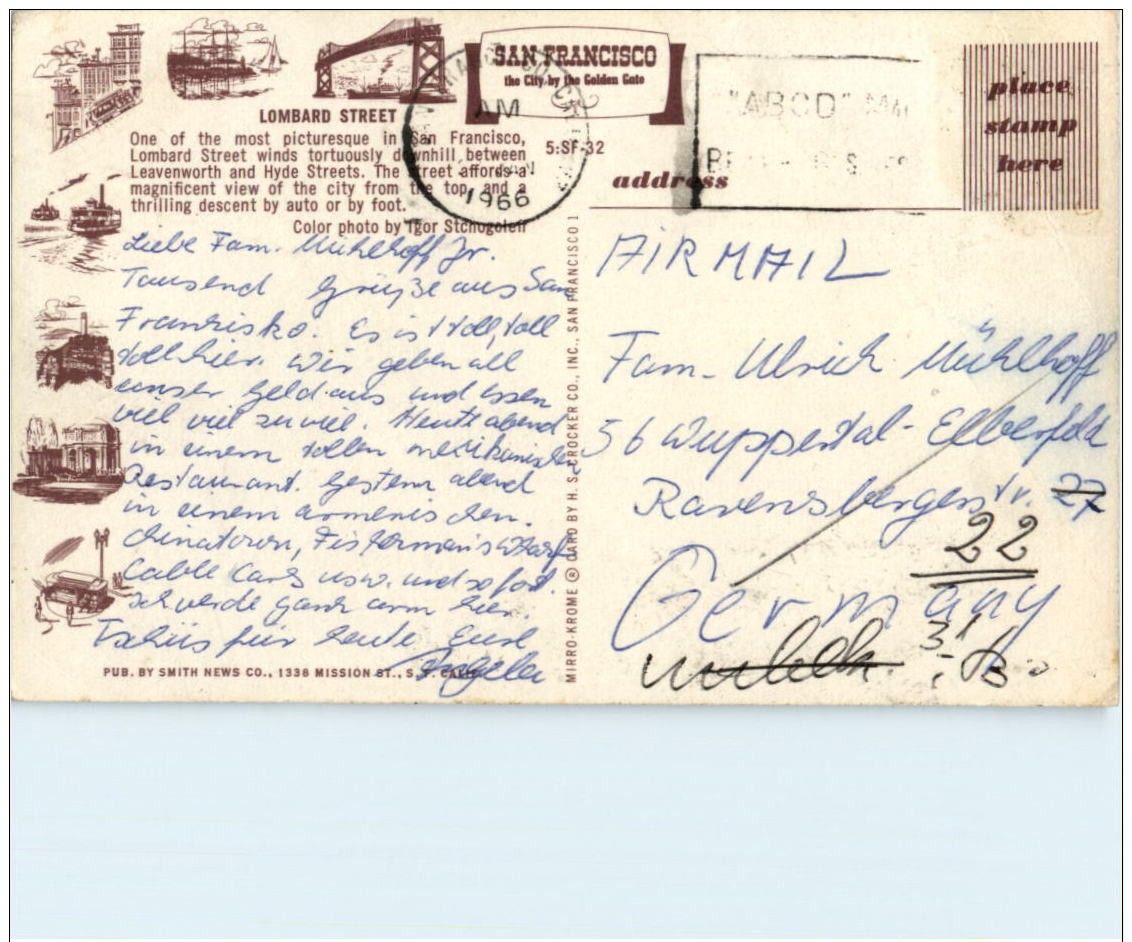 SAN FRANCISCO
the City by the Golden Gate
LOMBARD STREET
One of the most picturesque in San Francisco,
Lombard Street winds tortuously downhill between
Leavenworth and Hyde Streets. The street affords a
magnificent view of the city from the top, and a
thrilling descent by auto or by foot.
Color photo by Igor Stchogoleff
5:SF-32
AM
JAN
1966
"ABCD"
place
stamp
here
address
Liebe Fam. Mühlhoff Jr.
Tausend Grüße aus San
Franzisko. Es ist toll, toll
toll hier. Wir geben all
unser Geld aus und essen
viel viel zu viel. Heute abend
in einem tollen mexikanischen
Restaurant. Gestern abend
in einem armenischen.
Chinatown, Fisherman's Wharf
Cable Cars usw. und so fort.
Ich werde ganz arm hier.
Tschüs für heute Eure
Angela
PUB. BY SMITH NEWS CO., 1336 MISSION ST., S. F. CALIF.
MIRRO-KROME ® CARD BY H. S. CROCKER CO., INC., SAN FRANCISCO 1
AIRMAIL
Fam. Ulrich Mühlhoff
56 Wuppertal-Elberfeld
Ravensbergerstr. 27
22
Germany